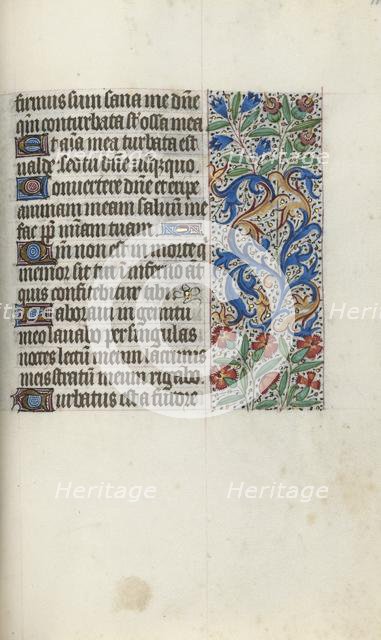 firmus sum sana me dñe
qm̄ conturbata st̄ ossa mea
Et aīa mea turbata est
valde sed tu dñe usq̄quo
Convertere dñe et eripe
animam meam salvum me
fac pp̄ m̄iam tuam
Qm̄ non est in morte q
memor sit tui in inferno at
quis confitebitur tibi
Laboravi in gemitu
meo lavabo per singulas
noctes lectū meum lacrimis
meis stratum meum rigabo.
Turbatus est a furore
Heritage Heritage
Heritage Heritage